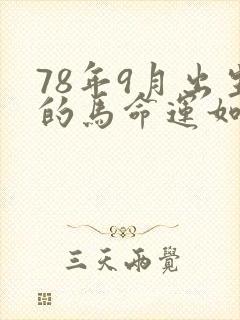 78年9月出生
的马命运如
三天两觉